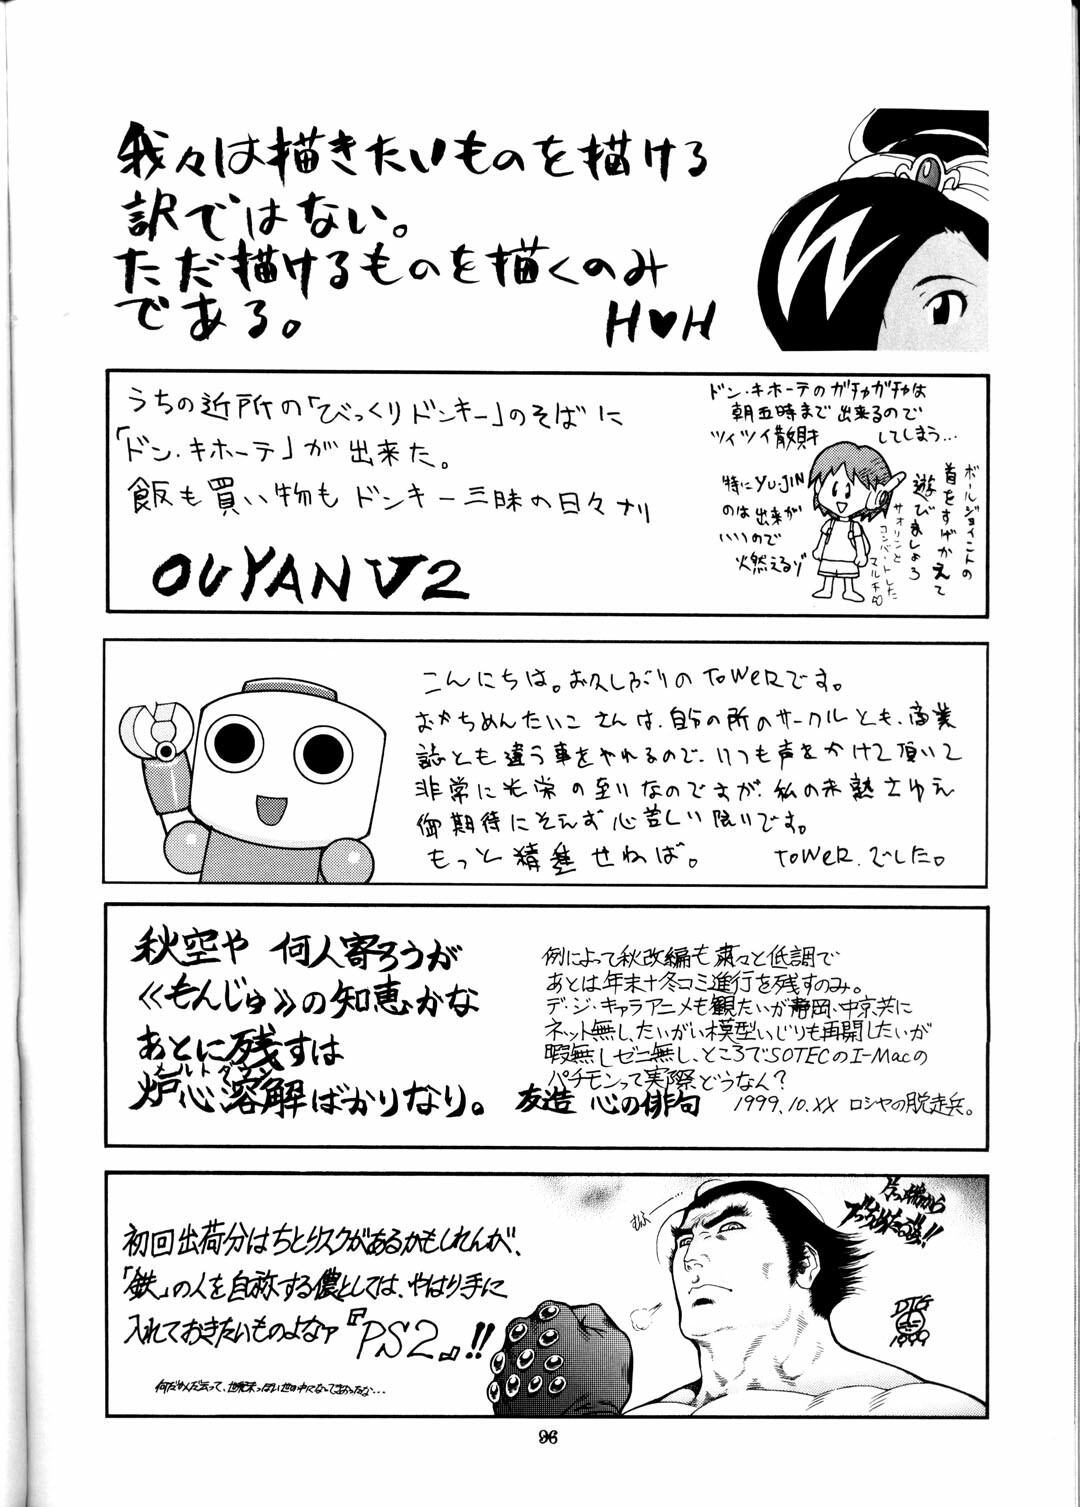 我々は描きたいものを描ける
訳ではない。
ただ描けるものを描くのみ
である。
H♥H
うちの近所の「びっくりドンキー」のそばに
「ドン・キホーテ」が出来た。
飯も買い物もドンキー三昧の日々ナリ
OUYAN V2
ドン・キホーテのガチャガチャは
朝五時まで出来るので
ツイツイ散財してしまう…
特にYUJIN
のは出来が
いいので
火燃えるゾ
ボールジョイントの
首をすげかえて
遊びましょう
サオリンと
コンバートした
マルチ
こんにちは。お久しぶりのToWeRです。
おかちめんたいこさんは、自分の所のサークルとも、商業
誌とも違う事をやれるので、いつも声をかけて頂いて
非常に光栄の至りなのですが、私の未熟さゆえ
御期待にそえず心苦しい限りです。
もっと精進せねば。
ToWeR.でした。
秋空や 何人寄ろうが
≪もんじゅ≫の知恵かな
あとに残すは
炉心溶解ばかりなり。
メルトダウン
友造 心の俳句
例によって秋改編も粛々と低調で
あとは年末+冬コミ進行を残すのみ。
デ・ジ・キャラアニメも観たいが静岡、中京共に
ネット無し、たいがい模型いじりも再開したいが
暇無しゼニ無し、ところでSOTECのI-Macの
パチモンって実際どうなん？
1999.10.XX ロシヤの脱走兵。
初回出荷分はちとリスクがあるかもしれんが、
「鉄」の人を自称する儂としては、やはり手に
入れておきたいものよなァ『PS2』!!
むふぅ
片っ端から
ブッちめたる強!!
DTG
1999
96